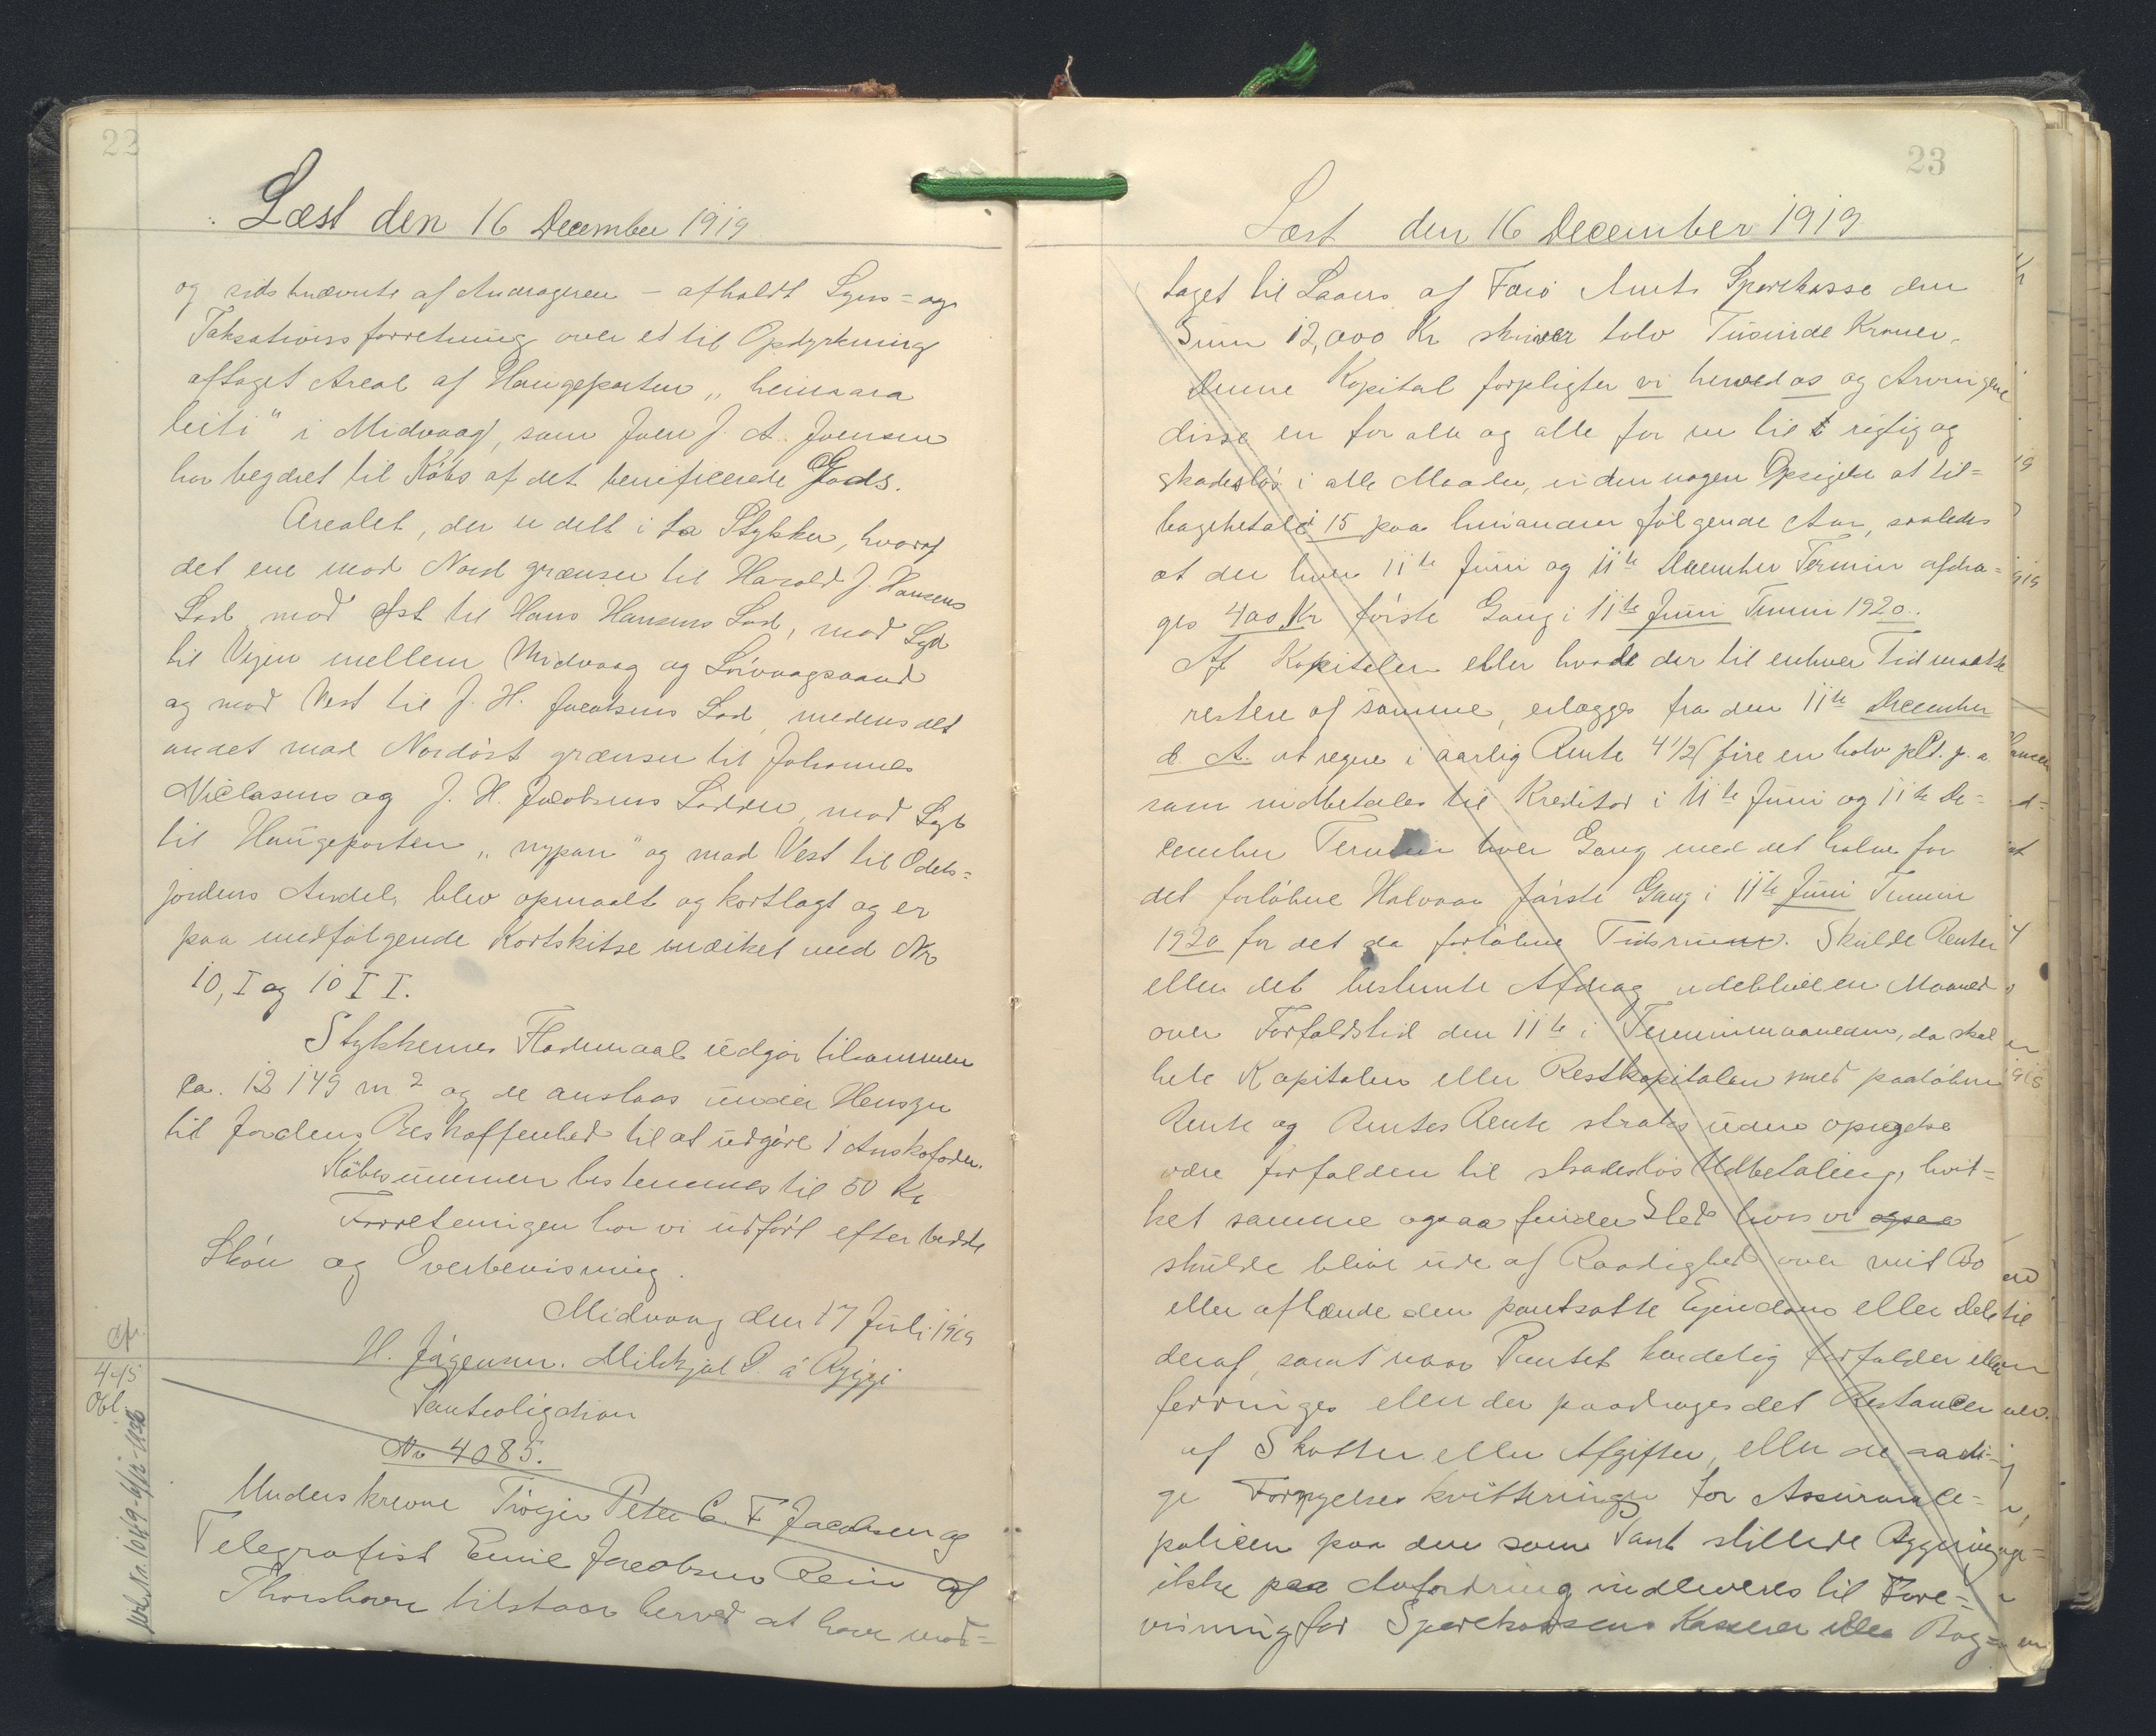 22
Læst den 16 December 1919
og sidstnævnte af Andrageren - afholdt Syns= og
Taksationsforretning over et til Opdyrkning
aftaget Areal af Haugeparten „heimara
leiti" i Midvaag, som Joen J. A. Joensen
har begæret til Købs af det benificerede Gods.
Arealet, der er delt i to Stykker, hvoraf
det ene mod Nord grænser til Harald J. Hansens
Lod mod Øst til Hans Hansens Lod, mod Syd
til Vejen mellem Midvaag og Sörvaagsvand
og mod Vest til J. H. Jacobsens Lod, medens det
andet mod Nordöst grænser til Johannes
Niclasens og J. H. Jacobsens Lodder, mod Syd
til Haugeparten „nypan" og mod Vest til Odels=
jordens Andel, blev opmaalt og kortlagt og er
paa medfölgende Kortskitse mærket med No
10, I og 10 II.
Stykkernes Flademaal udgör tilsammen
ca. 12149 m2 og de anslaas under Hensyn
til Jordens Beskaffenhed til at udgöre 1 Ansk
Köbesummen bestemmes til 50 Kr
Forretningen har vi udfört efter bedste
Skön og Overbevisning.
Midvaag den 17 Juli 1919
H. Jögensen. Milkjal P. á Ryggi
cfr.
445
Obl.
Panteoligation
No 4085.
Underskrevne Peter C. F Jacobsen og
Telegrafist Emil Jacobsen Rein af
Thorshavn tilstaar herved at have mod=
23
Læst den 16 December 1919
taget til Laans af Færö Amts Sparekasse den
Sum 12,000 Kr skriver tolv Tusinde Kroner.
Denne Kapital forpligter vi herved os og Arvingene
disse en for alle og alle for en til t rigtig og
skadeslös i alle Maader, uden nogen Opsigelse at til=
bagebetale i 15 paa hinanden fölgende Aar, saaledes
at der hver 11te Juni og 11te December Termin afdra=
ges 400 Kr förste Gang i 11te Juni Termin 1920.
Af Kapitalen eller hvad der til enhver Tid maatte
restere af samme, erlægges fra den 11te December
d. A. at regne i aarlig Rente 4 1/2 (fire en halv pCt. p. a.
som indbetales til Kreditor i 11te Juni og 11te De=
cember Termin hver Gang med det halve for
det forlöbne Halvaar förste Gang i 11te Juni Termin
1920 for det da forlöbne Tidsrum. Skulde Renter
eller det bestemte Afdrag udeblive en Maaned
over Forfaldstid den 11te i Terminmaaneden, da skal
hele Kapitalen eller Restkapitalen med paalöbne
Rente og Rentes Rente straks uden opsigelse
være forfalden til skadeslös Udbetaling, hvil=
ket samme ogsaa finder Sted hvis vi ogsaa
skulde blive ude af Raadighed over mit Bo
eller afhænde den pantsatte Ejendom eller Dele
deraf, samt naar Pantet kendelig forfalder eller
forringes eller der paadrages det Restancer
af Skatter eller Afgifter, eller de aarli=
ge Fornyelses kvitteringer for Assurance=
policen paa den som Pant stillede Bygning
ikke paa Anfordring indleveres til Fore=
visning for Sparekassens Kasserer eller Bog=